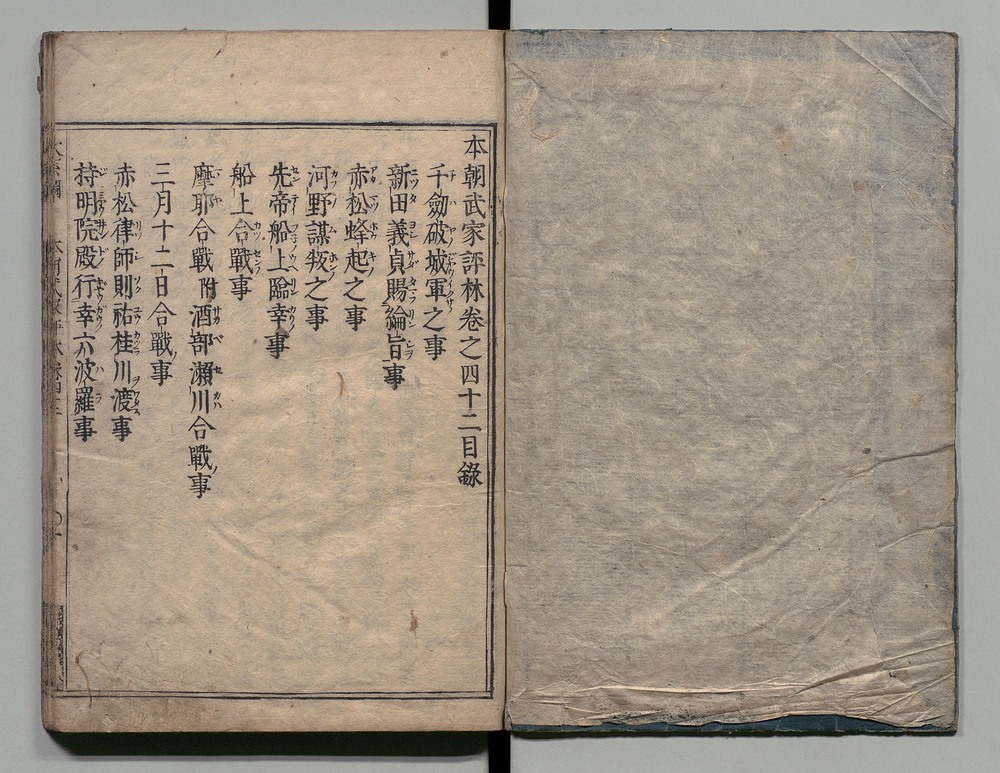 本朝武家評林卷之四十二目錄
千劔破城軍之事
新田義貞賜綸旨事
赤松蜂起之事
河野謀叛之事
先帝船上臨幸事
船上合戰事
摩耶合戰附酒部瀬川合戰事
三月十二日合戰事
赤松律師則祐桂川渡事
持明院殿行幸六波羅事